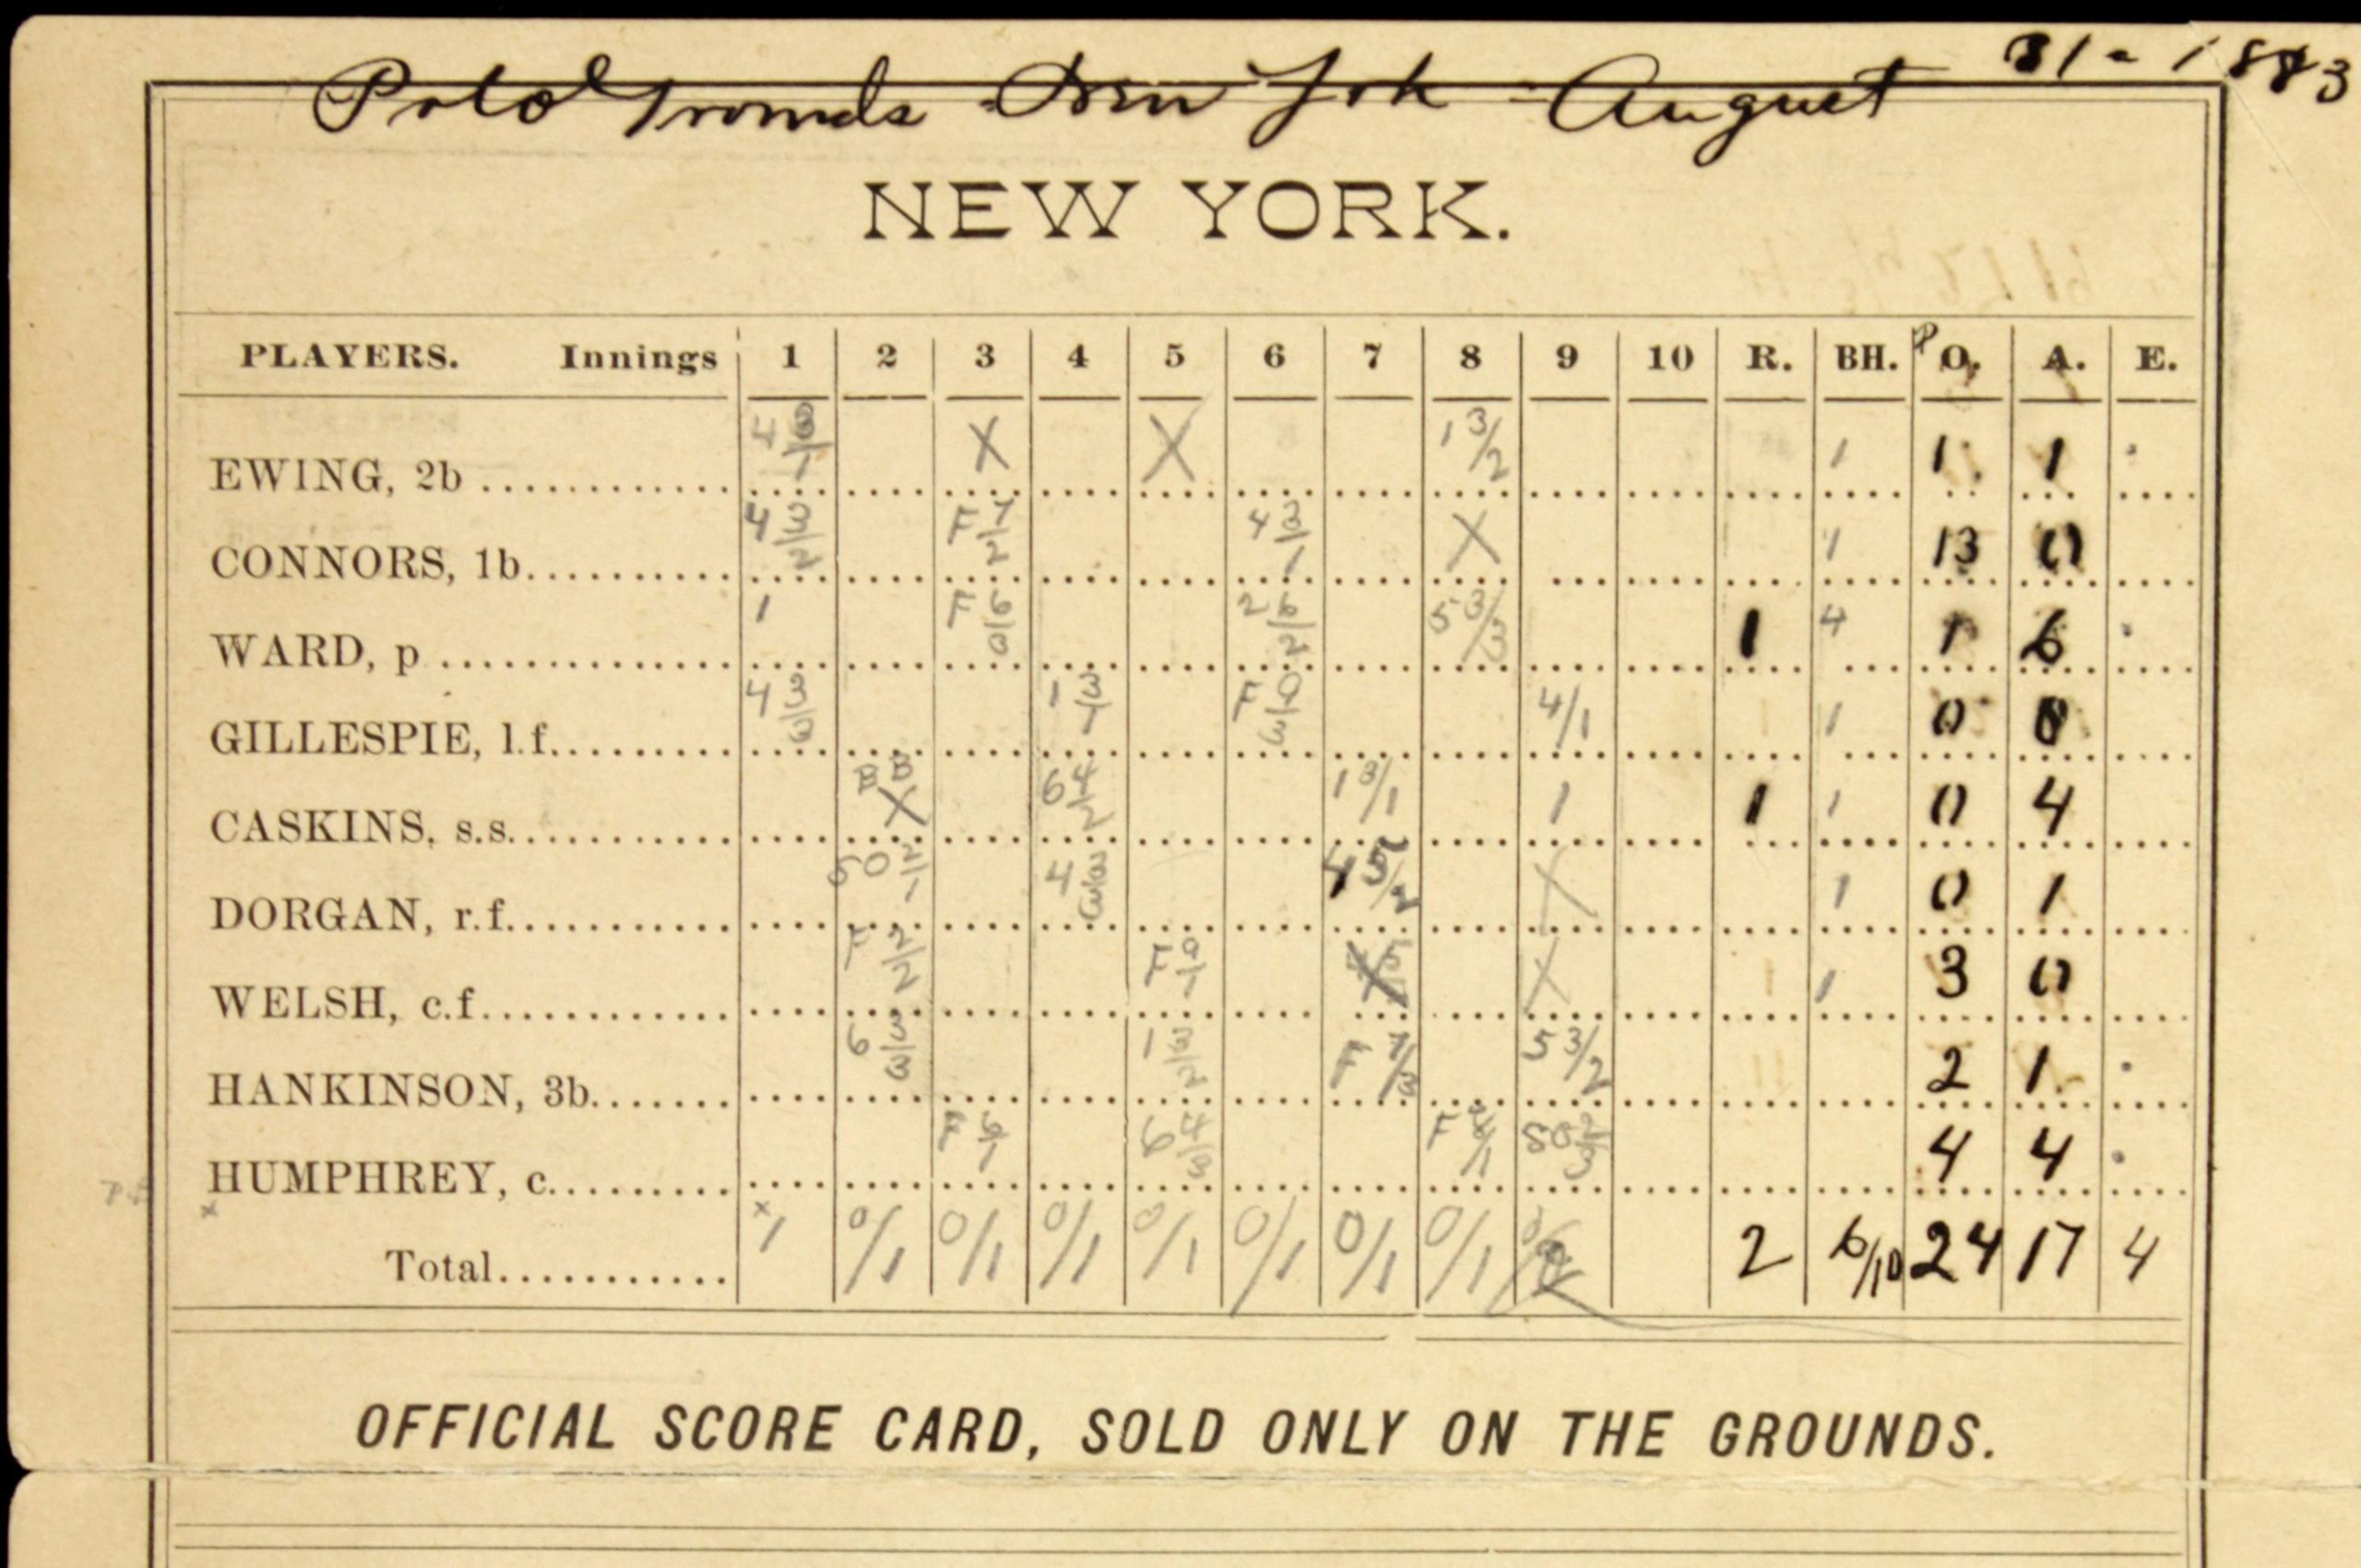 Polo Grounds New York August 31 - 1883
NEW YORK.
PLAYERS. Innings 1 2 3 4 5 6 7 8 9 10 R. BH. PO. A. E.
EWING, 2b 4 3/1 X X 1 3/2 1 1 1 .
CONNORS, 1b 4 3/2 F 7/2 4 3/1 X 1 13 0
WARD, p 1 F 6/3 2 6/2 5 3/3 1 4 1 6 .
GILLESPIE, l.f. 4 3/3 1 3/1 F 9/3 4/1 1 0 0
CASKINS, s.s. BB X 6 4/2 1 3/1 1 1 1 0 4
DORGAN, r.f. SO 2/1 4 3/3 4 5/2 X 1 0 1
WELSH, c.f. F 2/2 F 9/1 X 1 3 0
HANKINSON, 3b. 6 3/3 1 3/2 F 7/3 5 3/2 2 1 .
HUMPHREY, c. F 6/1 6 4/3 F 8/1 SO 2/3 4 4 .
Total x/1 0/1 0/1 0/1 0/1 0/1 0/1 0/1 2 6/10 24 17 4
OFFICIAL SCORE CARD, SOLD ONLY ON THE GROUNDS.